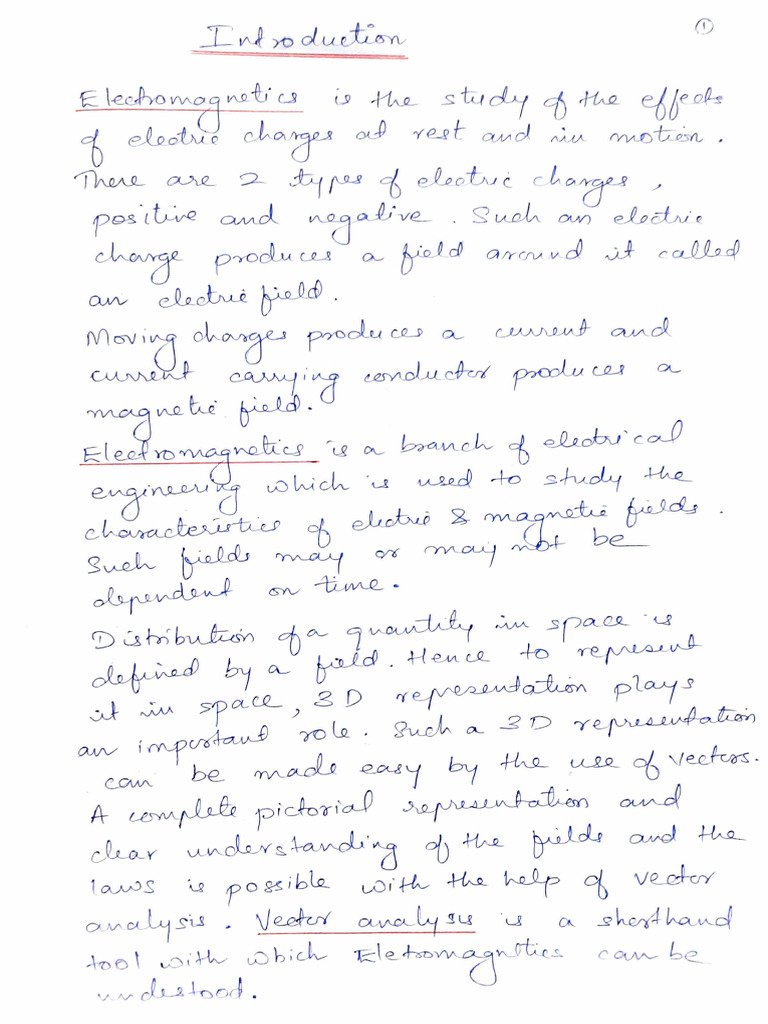 ①
Introduction
Electromagnetics is the study of the effects
of electric charges at rest and in motion.
There are 2 types of electric charges,
positive and negative. Such an electric
charge produces a field around it called
an electric field.
Moving charges produces a current and
current carrying conductor produces a
magnetic field.
Electromagnetics is a branch of electrical
engineering which is used to study the
characteristics of electric & magnetic fields.
Such fields may or may not be
dependent on time.
Distribution of a quantity in space is
defined by a field. Hence to represent
it in space, 3D representation plays
an important role. Such a 3D representation
can be made easy by the use of vectors.
A complete pictorial representation and
clear understanding of the fields and the
laws is possible with the help of vector
analysis. Vector analysis is a shorthand
tool with which Eletromagnetics can be
undestood.